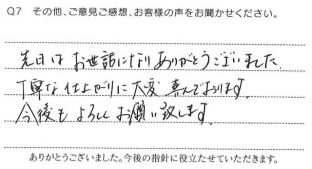 Q7 その他、ご意見ご感想、お客様の声をお聞かせください。
先日はお世話になりありがとうございました。
丁寧な仕上がりに大変喜んでおります。
今後もよろしくお願い致します。
ありがとうございました。今後の指針に役立たせていただきます。